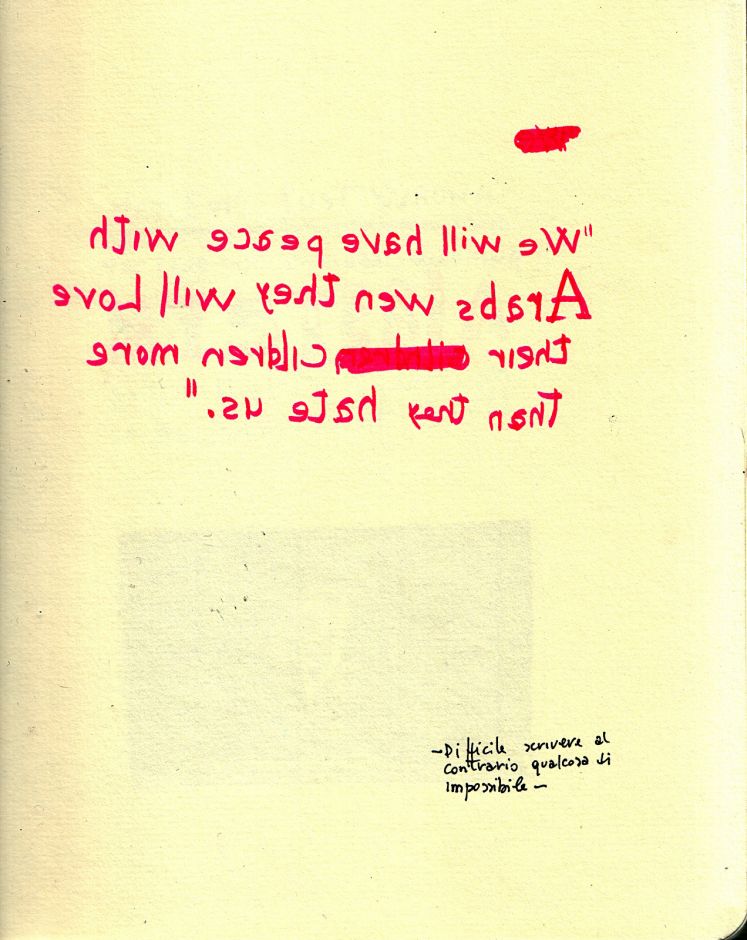 "We will have peace with
Arabs wen they will Love
their cildren more
than they hate us."
-Difficile scrivere al
contrario qualcosa di
impossibile-